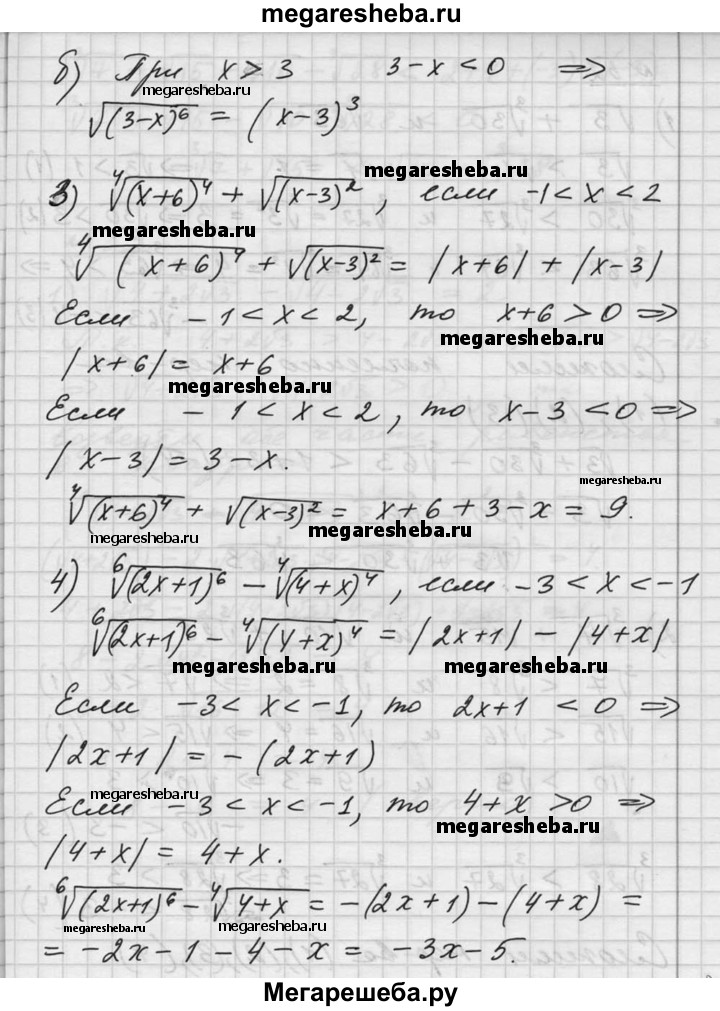 megaresheba.ru
б) При x > 3 3-x < 0 ⇒
megaresheba.ru
√(3-x)⁶ = (x-3)³
megaresheba.ru
3) ⁴√(x+6)⁴ + √(x-3)², если -1 < x < 2
megaresheba.ru
⁴√(x+6)⁴ + √(x-3)² = |x+6| + |x-3|
Если -1 < x < 2, то x+6 > 0 ⇒
megaresheba.ru
|x+6| = x+6
megaresheba.ru
Если -1 < x < 2, то x-3 < 0 ⇒
|x-3| = 3-x.
megaresheba.ru
⁴√(x+6)⁴ + √(x-3)² = x+6+3-x = 9.
megaresheba.ru megaresheba.ru
4) ⁶√(2x+1)⁶ - ⁴√(4+x)⁴, если -3 < x < -1
⁶√(2x+1)⁶ - ⁴√(4+x)⁴ = |2x+1| - |4+x|
megaresheba.ru megaresheba.ru
Если -3 < x < -1, то 2x+1 < 0 ⇒
|2x+1| = -(2x+1)
megaresheba.ru
Если -3 < x < -1, то 4+x > 0 ⇒
megaresheba.ru
|4+x| = 4+x.
⁶√(2x+1)⁶ - ⁴√4+x = -(2x+1)-(4+x) =
megaresheba.ru megaresheba.ru
= -2x-1-4-x = -3x-5.
Мегарешеба.ру